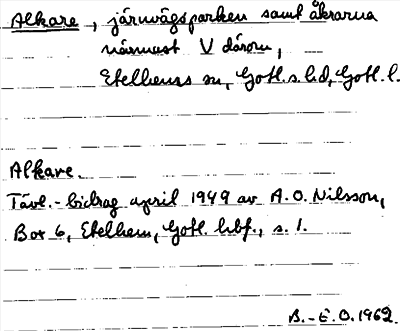 Alkare, järnvägsparken samt åkrarna
närmast V därom,
Etelhems sn, Gotl. s. hd, Gotl. l.
Alkare.
Tävl.-bidrag april 1949 av A. O. Nilsson,
Box 6, Etelhem, Gotl. hbf., s. 1.
B.-E. O. 1962.